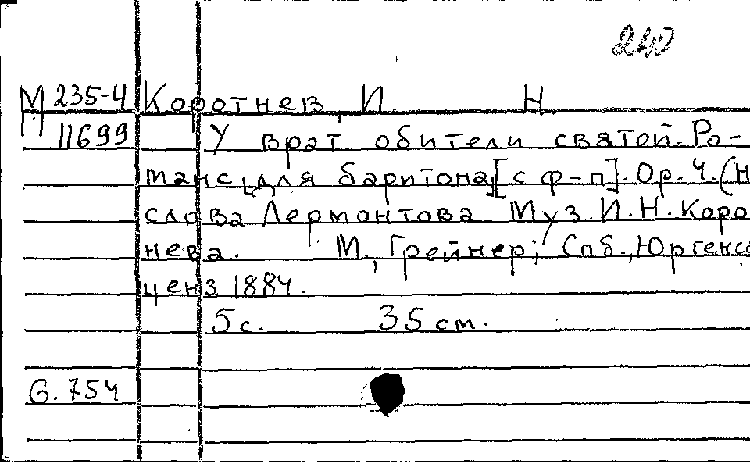 240
М 235-4 Коротнев, И. Н.
П 11699 У врат обители святой. Ро-
манс для баритона [с ф-п]. Ор. 4. (Н
слова Лермонтова Муз. И. Н. Коро
нева. М., Грейнер; Спб., Юргенсо
ценз. 1884.
5 с. 35 см.
G. 754